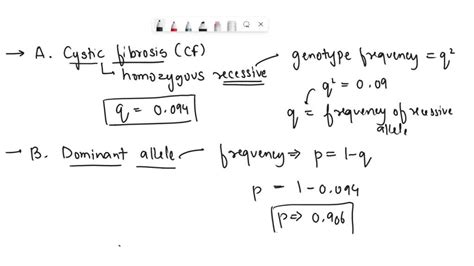 → A. Cystic fibrosis (CF) genotype frequency = q²
↳ homozygous recessive q² = 0.09
q = 0.094 q = frequency of recessive allele
→ B. Dominant allele frequency ⇒ p = 1-q
p = 1-0.094
p ⇒ 0.906